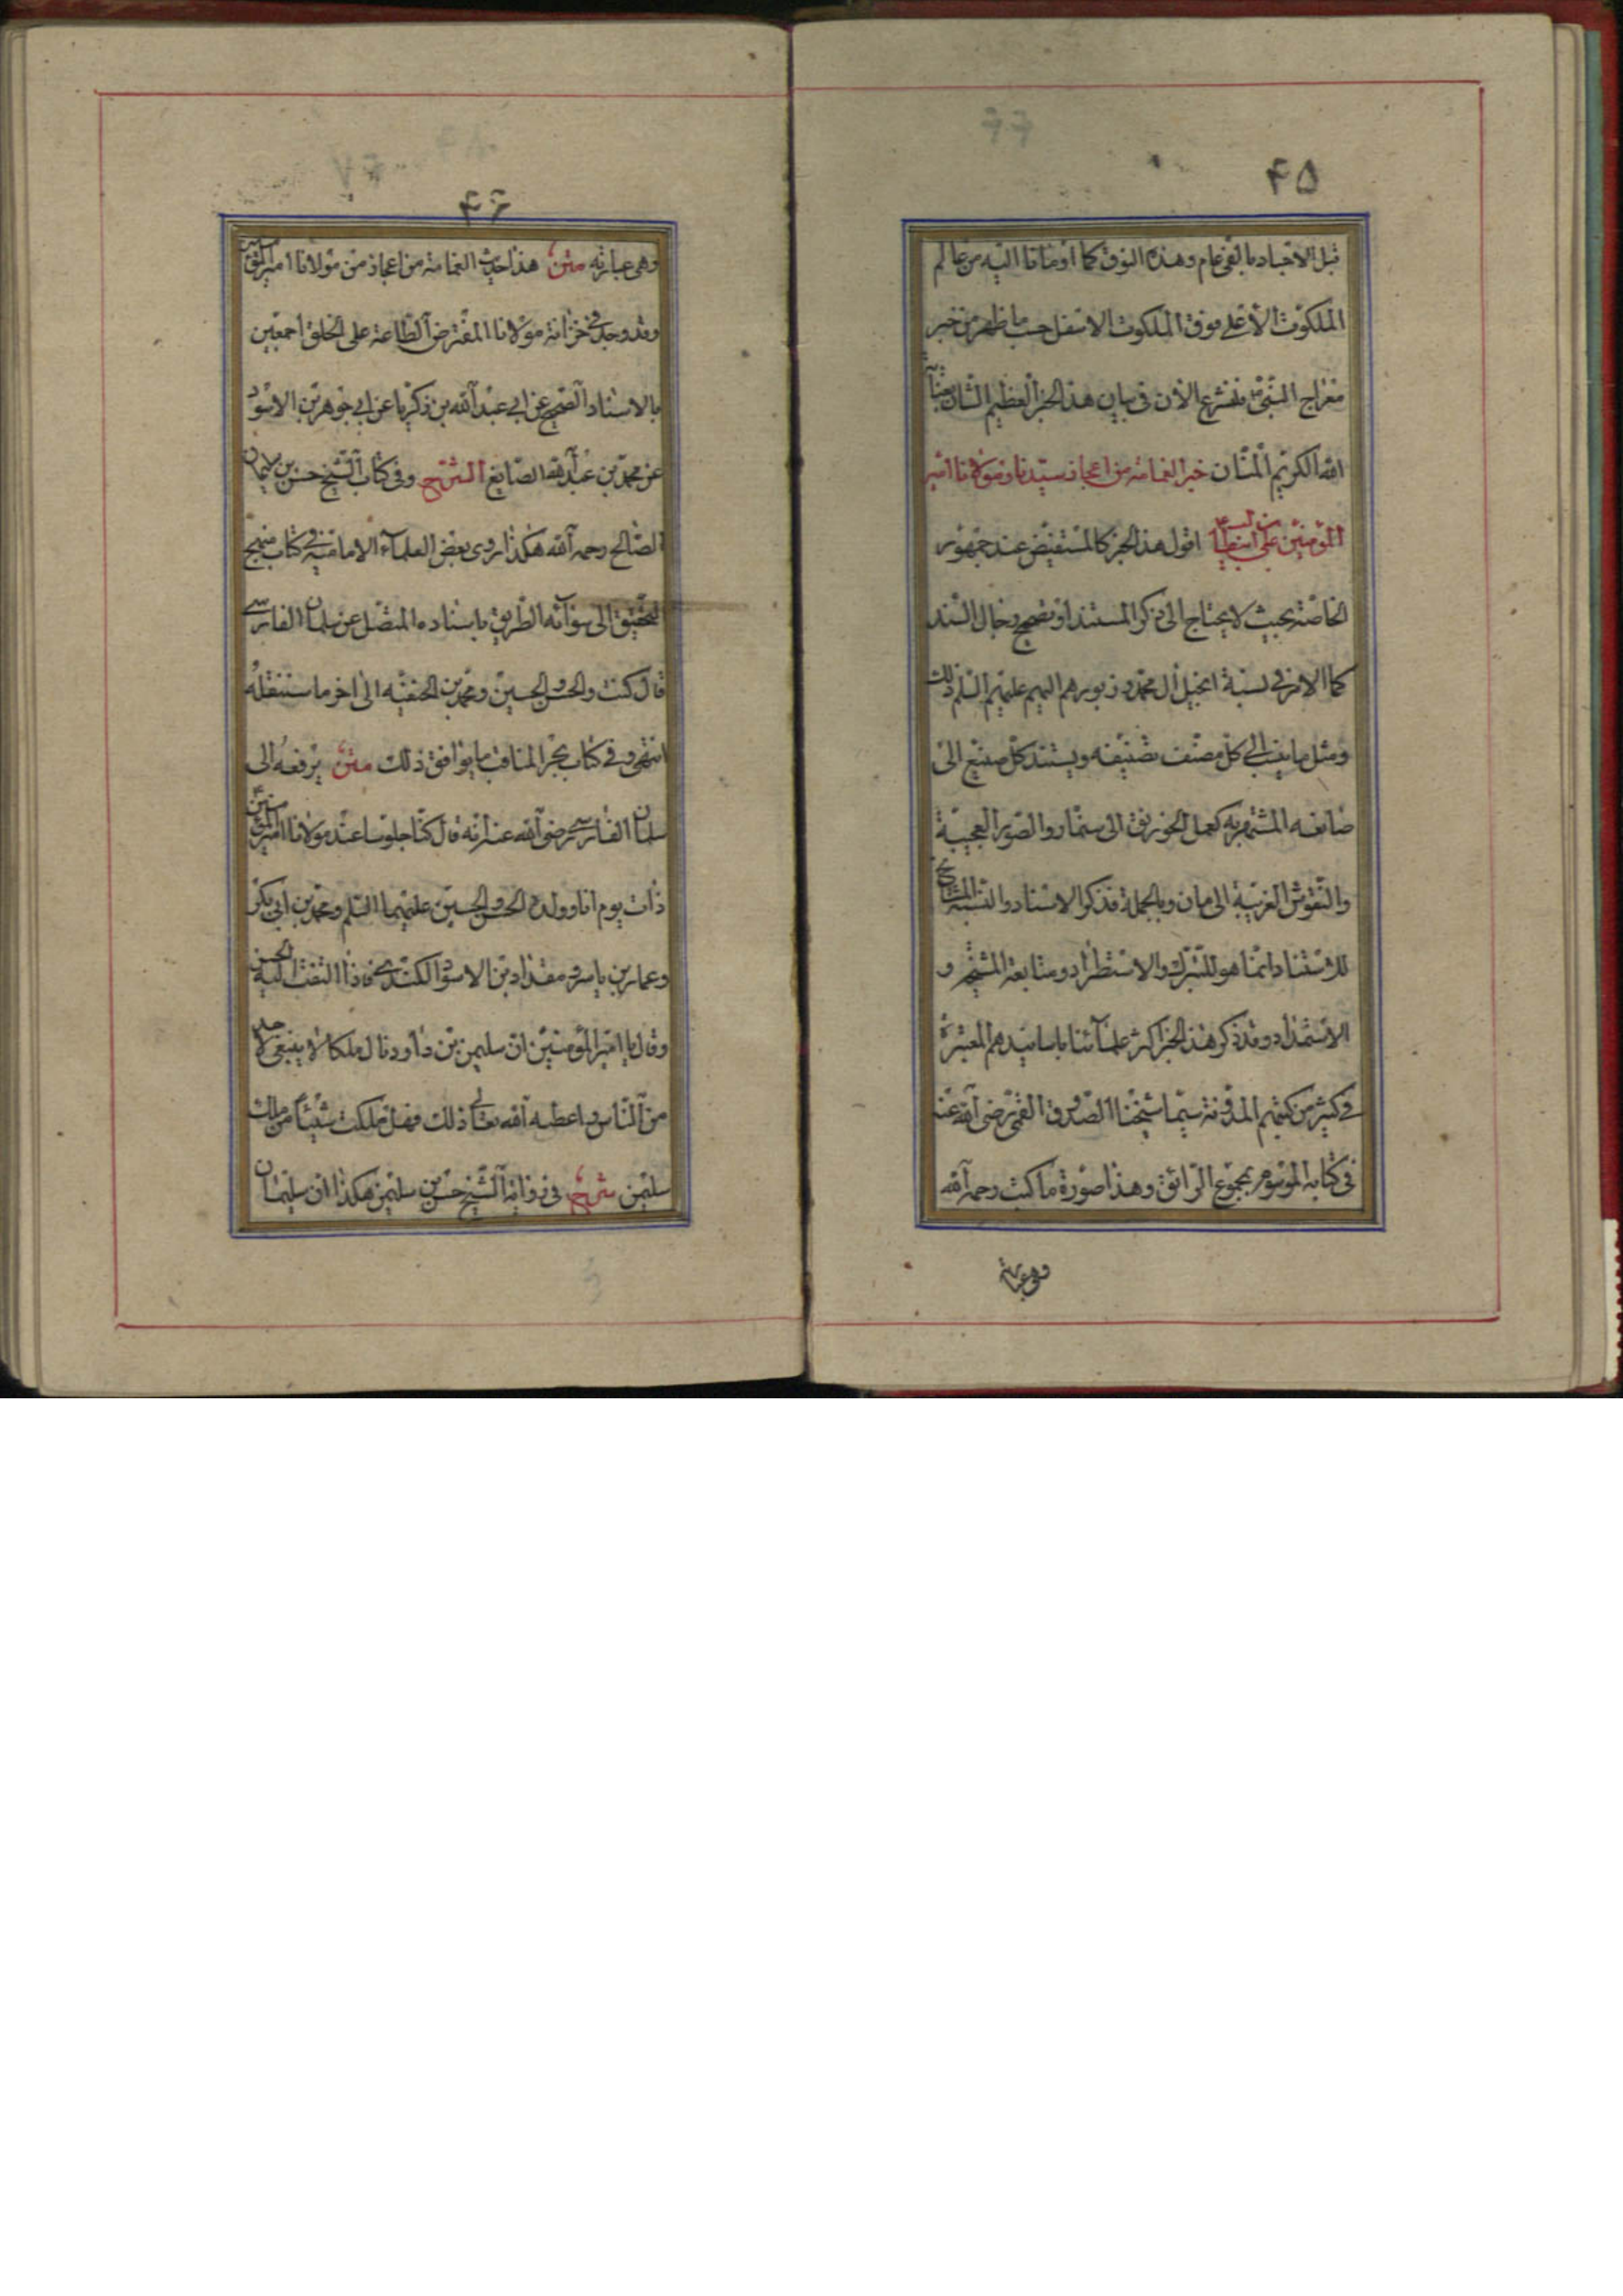 ۴۵
قبل الاجساد بالفی عام وهذه الفوق کما اومانا الیه من عالم
الملکوت الاعلی فوق الملکوت الاسفل حسب ما ظهر من خبر
معراج النبی فنشرع الآن فی بیان هذا الخبر العظیم الشان بعنایة
الله الکریم المنان خبر الغمامة من اعجاز سیدنا ومولانا امیر
المؤمنین علی بن ابیطالب اقول هذا الخبر کالمستفیض عند جمهور
الخاصة بحیث لا یحتاج الی ذکر المستند او تصحیح رجال السند
کما الامر فی نسبة انجیل آل محمد وزبورهم الیهم علیهم السلم وذلک
ومثل ما ینسب الی کل مصنف تصنیفه ویستند کل صنیع الی
صانعه المشتهر به کعمل الخورنق الی سنمار والصور العجیبة
والنقوش الغریبة الی مان وبالجملة فذکر الاسناد والنسبة المشایخ
للاستناد انما هو للتبرک والاستطراد ومتابعة المشیخة و
الاستمداد وقد ذکر هذا الخبر اکثر علمائنا باسانیدهم المعتبرة
فی کثیر من کتبهم المدونة سیما شیخنا الصدوق القمی رضی الله عنه
فی کتابه الموسوم بمجموع الرائق وهذا صورة ما کتب رحمه الله
وهی عبارته
۴۶
وهی عبارته متن هذا حدیث الغمامة من اعجاز من مولانا امیر المؤمنین
وقد وجد فی خزانة مولانا المفترض الطاعة علی الخلق اجمعین
بالاسناد الصحیح عن ابی عبد الله بن زکریا عن ابی جوهر بن الاسود
عن محمد بن عبد الله الصایغ الشرح وفی کتاب الشیخ حسن بن سلیمان
الصالح رحمه الله هکذا روی بعض العلماء الامامیة فی کتاب منهج
التحقیق الی سوآء الطریق باسناده المتصل عن سلمان الفارسی
قال کنت والحسن والحسین ومحمد بن الحنفیة الی اخر ما سننقله
انتهی وفی کتاب بحر المناقب ما یوافق ذلک متن یرفعه الی
سلمان الفارسی رضی الله عنه انه قال کنا جلوسا عند مولانا امیر المؤمنین
ذات یوم انا وولده الحسن والحسین علیهما السلم ومحمد بن ابی بکر
وعمار بن یاسر ومقداد بن الاسود الکندی فاذا التفت الیه الحسن
وقال یا امیر المؤمنین ان سلیمن بن داود نال ملکا لا ینبغی لاحد
من الناس واعطیه الله تعالی ذلک فهل ملکت شیئا من ملک
سلیمن شرح فی روایة الشیخ حسن بن سلیمن هکذا ان سلیمان